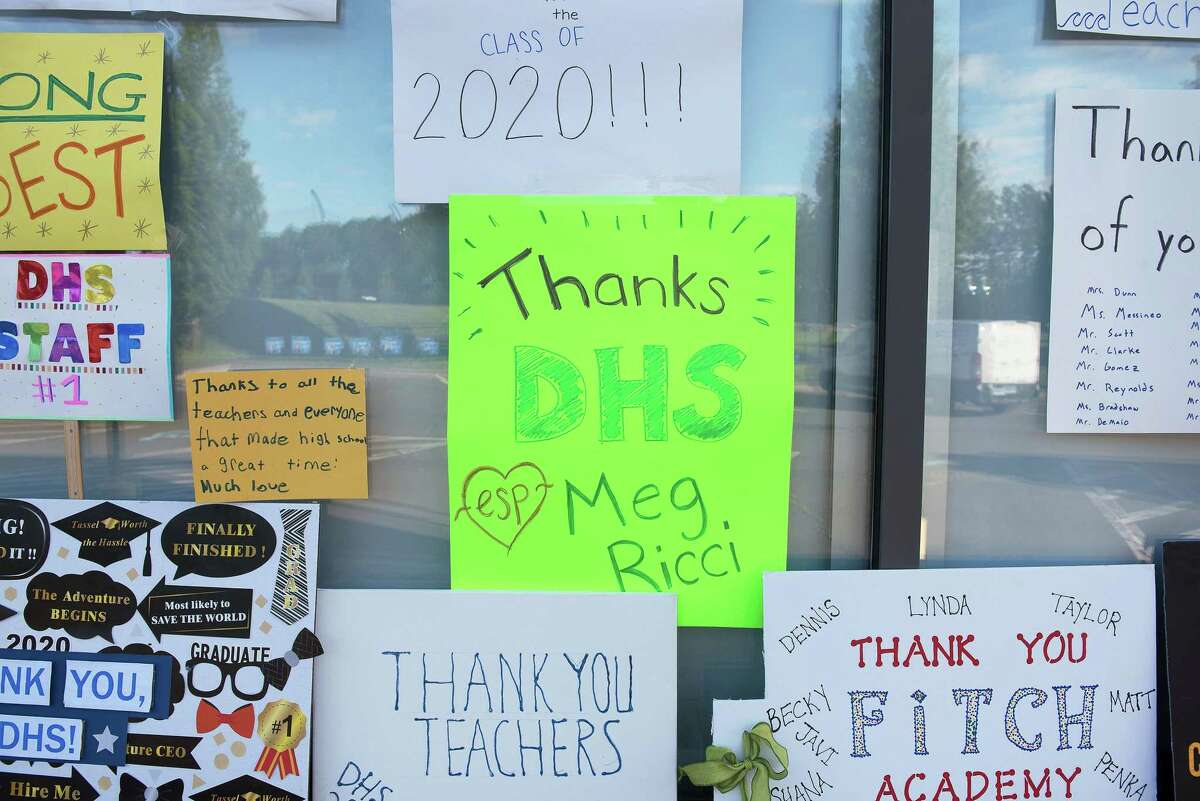 the
CLASS OF
2020!!!
each
ONG
Thank
of yo
Mrs. Dunn
Ms. Messineo
Mr. Scott
Mr. Clarke
Mr. Gomez
Mr. Reynolds
Ms. Bradshaw
Mr. DeMaio
DHS
STAFF
#1
Thanks to all the
teachers and everyone
that made high school
a great time!
Much love
Thanks
DHS
esp Meg
Ricci
Tassel Worth
the Hassle
FINALLY
FINISHED!
GRAD
IT!!
The Adventure
BEGINS
Most likely to
SAVE THE WORLD
2020
GRADUATE
NK YOU,
DHS!
#1
ture CEO
Hire Me
Tassel Worth
THANK YOU
TEACHERS
DHS
DENNIS
LYNDA
TAYLOR
THANK YOU
BECKY
JAVI
SHANA
FiTCH
MATT
PENKA
ACADEMY